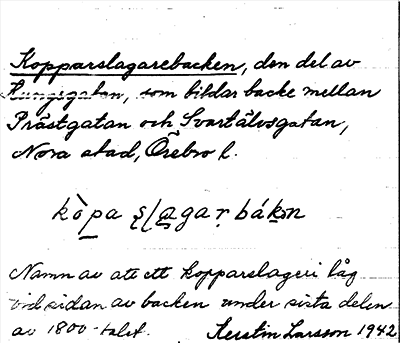 Kopparslagarebacken, den del av
Kungsgatan, som bildar backe mellan
Prästgatan och Svartälvsgatan,
Nora stad, Örebro l.
kò̀pa ṣlagaṛ bákən
Namn av att ett kopparslageri låg
vid sidan av backen under sista delen
av 1800-talet. Kerstin Larsson 1942